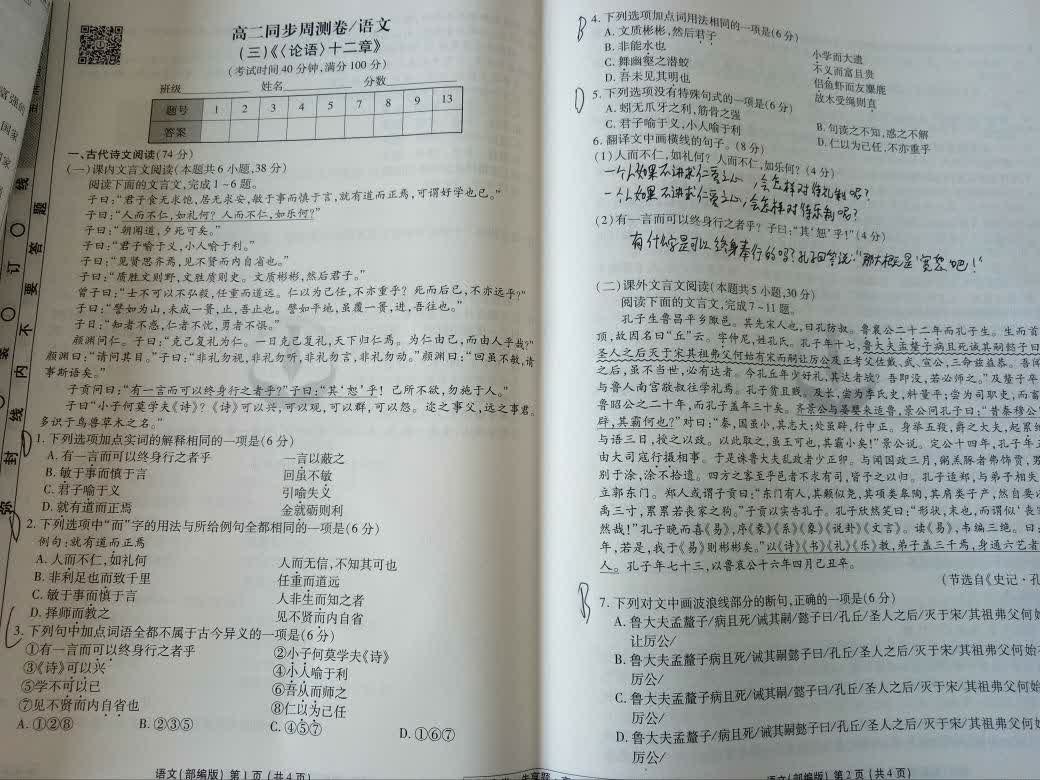 高二同步周测卷/语文
(三)《〈论语〉十二章》
(考试时间40分钟,满分100分)
班级 姓名 分数
题号 1 2 3 4 5 7 8 9 13
答案
一、古代诗文阅读(74分)
(一)课内文言文阅读(本题共6小题,38分)
阅读下面的文言文,完成1~6题。
子曰:“君子食无求饱,居无求安,敏于事而慎于言,就有道而正焉,可谓好学也已。”
子曰:“人而不仁,如礼何?人而不仁,如乐何?”
子曰:“朝闻道,夕死可矣。”
子曰:“君子喻于义,小人喻于利。”
子曰:“见贤思齐焉,见不贤而内自省也。”
子曰:“质胜文则野,文胜质则史。文质彬彬,然后君子。”
曾子曰:“士不可以不弘毅,任重而道远。仁以为己任,不亦重乎?死而后已,不亦远乎?”
子曰:“譬如为山,未成一篑,止,吾止也。譬如平地,虽覆一篑,进,吾往也。”
子曰:“知者不惑,仁者不忧,勇者不惧。”
颜渊问仁。子曰:“克己复礼为仁。一日克己复礼,天下归仁焉。为仁由己,而由人乎哉?”
颜渊曰:“请问其目。”子曰:“非礼勿视,非礼勿听,非礼勿言,非礼勿动。”颜渊曰:“回虽不敏,请
事斯语矣。”
子贡问曰:“有一言而可以终身行之者乎?”子曰:“其‘恕’乎!己所不欲,勿施于人。”
子曰“小子何莫学夫《诗》?《诗》可以兴,可以观,可以群,可以怨。迩之事父,远之事君。
多识于鸟兽草木之名。”
1. 下列选项加点实词的解释相同的一项是(6分)
A. 有一言而可以终身行之者乎 一言以蔽之
B. 敏于事而慎于言 回虽不敏
C. 君子喻于义 引喻失义
D. 就有道而正焉 金就砺则利
2. 下列选项中“而”字的用法与所给例句全都相同的一项是(6分)
例句:就有道而正焉
A. 人而不仁,如礼何 人而无信,不知其可也
B. 非利足也而致千里 任重而道远
C. 敏于事而慎于言 人非生而知之者
D. 择师而教之 见不贤而内自省
3. 下列句中加点词语全都不属于古今异义的一项是(6分)
①有一言而可以终身行之者乎 ②小子何莫学夫《诗》
③《诗》可以兴 ④小人喻于利
⑤学不可以已 ⑥吾从而师之
⑦见不贤而内自省也 ⑧仁以为己任
A. ①②⑧ B. ②③⑤ C. ④⑤⑦ D. ①⑥⑦
语文(部编版) 第1页(共4页)
弥 封 线 内 不 要 答 题
装 订 线
B
4. 下列选项加点词用法相同的一项是(6分)
A. 文质彬彬,然后君子 小学而大遗
B. 非能水也 不义而富且贵
C. 舞幽壑之潜蛟 侣鱼虾而友麋鹿
D. 吾未见其明也 故木受绳则直
D
5. 下列选项没有特殊句式的一项是(6分)
A. 蚓无爪牙之利,筋骨之强 B. 句读之不知,惑之不解
C. 君子喻于义,小人喻于利 D. 仁以为己任,不亦重乎
6. 翻译文中画横线的句子。(8分)
(1)人而不仁,如礼何?人而不仁,如乐何?(4分)
一个人如果不讲求仁爱之心,会怎样对待礼制呢?
一个人如果不讲求仁爱之心,会怎样对待乐制呢?
(2)有一言而可以终身行之者乎?子曰:“其‘恕’乎!”(4分)
有什么字是可以终身奉行的吗?孔子回答说:“那大概是‘宽恕’吧!”
(二)课外文言文阅读(本题共5小题,30分)
阅读下面的文言文,完成7~11题。
孔子生鲁昌平乡陬邑。其先宋人也,曰孔防叔。鲁襄公二十二年而孔子生。生而首
顶,故因名曰“丘”云。字仲尼,姓孔氏。孔子年十七,鲁大夫孟釐子病且死诫其嗣懿子曰
圣人之后灭于宋其祖弗父何始有宋而嗣让厉公及正考父佐戴、武、宣公,三命兹益恭。吾闻
之后,虽不当世,必有达者。今孔丘年少好礼,其达者欤?吾即没,若必师之。”及釐子卒
与鲁人南宫敬叔往学礼焉。孔子贫且贱。及长,尝为季氏史,料量平;尝为司职吏,而畜
鲁昭公之二十年,而孔子盖年三十矣。齐景公与晏婴来适鲁,景公问孔子曰:“昔秦穆公
辟,其霸何也?”对曰:“秦,国虽小,其志大;处虽辟,行中正。身举五羖,爵之大夫,起累绁
与语三日,授之以政。以此取之,虽王可也,其霸小矣!”景公说。定公十四年,孔子年五
由大司寇行摄相事。于是诛鲁大夫乱政者少正卯。与闻国政三月,粥羔豚者弗饰贾,男
别于涂,涂不拾遗。四方之客至乎邑者不求有司,皆予之以归。孔子适郑,与弟子相失
立郭东门。郑人或谓子贡曰:“东门有人,其颡似尧,其项类皋陶,其肩类子产,然自要以
禹三寸,累累若丧家之狗。”子贡以实告孔子。孔子欣然笑曰:“形状,末也,而谓似‘丧家
然哉!”孔子晚而喜《易》,序《彖》《系》《象》《说卦》《文言》。读《易》,韦编三绝。曰:
年,若是,我于《易》则彬彬矣。”以《诗》《书》《礼》《乐》教,弟子盖三千焉,身通六艺者
人。孔子年七十三,以鲁哀公十六年四月己丑卒。
(节选自《史记·孔
B
7. 下列对文中画波浪线部分的断句,正确的一项是(6分)
A. 鲁大夫孟釐子/病且死/诫其嗣/懿子曰/孔丘/圣人之后/灭于宋/其祖弗父何始
让厉公/
B. 鲁大夫孟釐子病且死/诫其嗣懿子曰/孔丘/圣人之后/灭于宋/其祖弗父何始
厉公/
C. 鲁大夫孟釐子病且死/诫其嗣/懿子曰/孔丘/圣人之后/灭于宋/其祖弗父何始
厉公/
D. 鲁大夫孟釐子/病且死/诫其嗣懿子曰/孔丘/圣人之后/灭于宋/其祖弗父何始
厉公/
语文(部编版) 第2页(共4页)